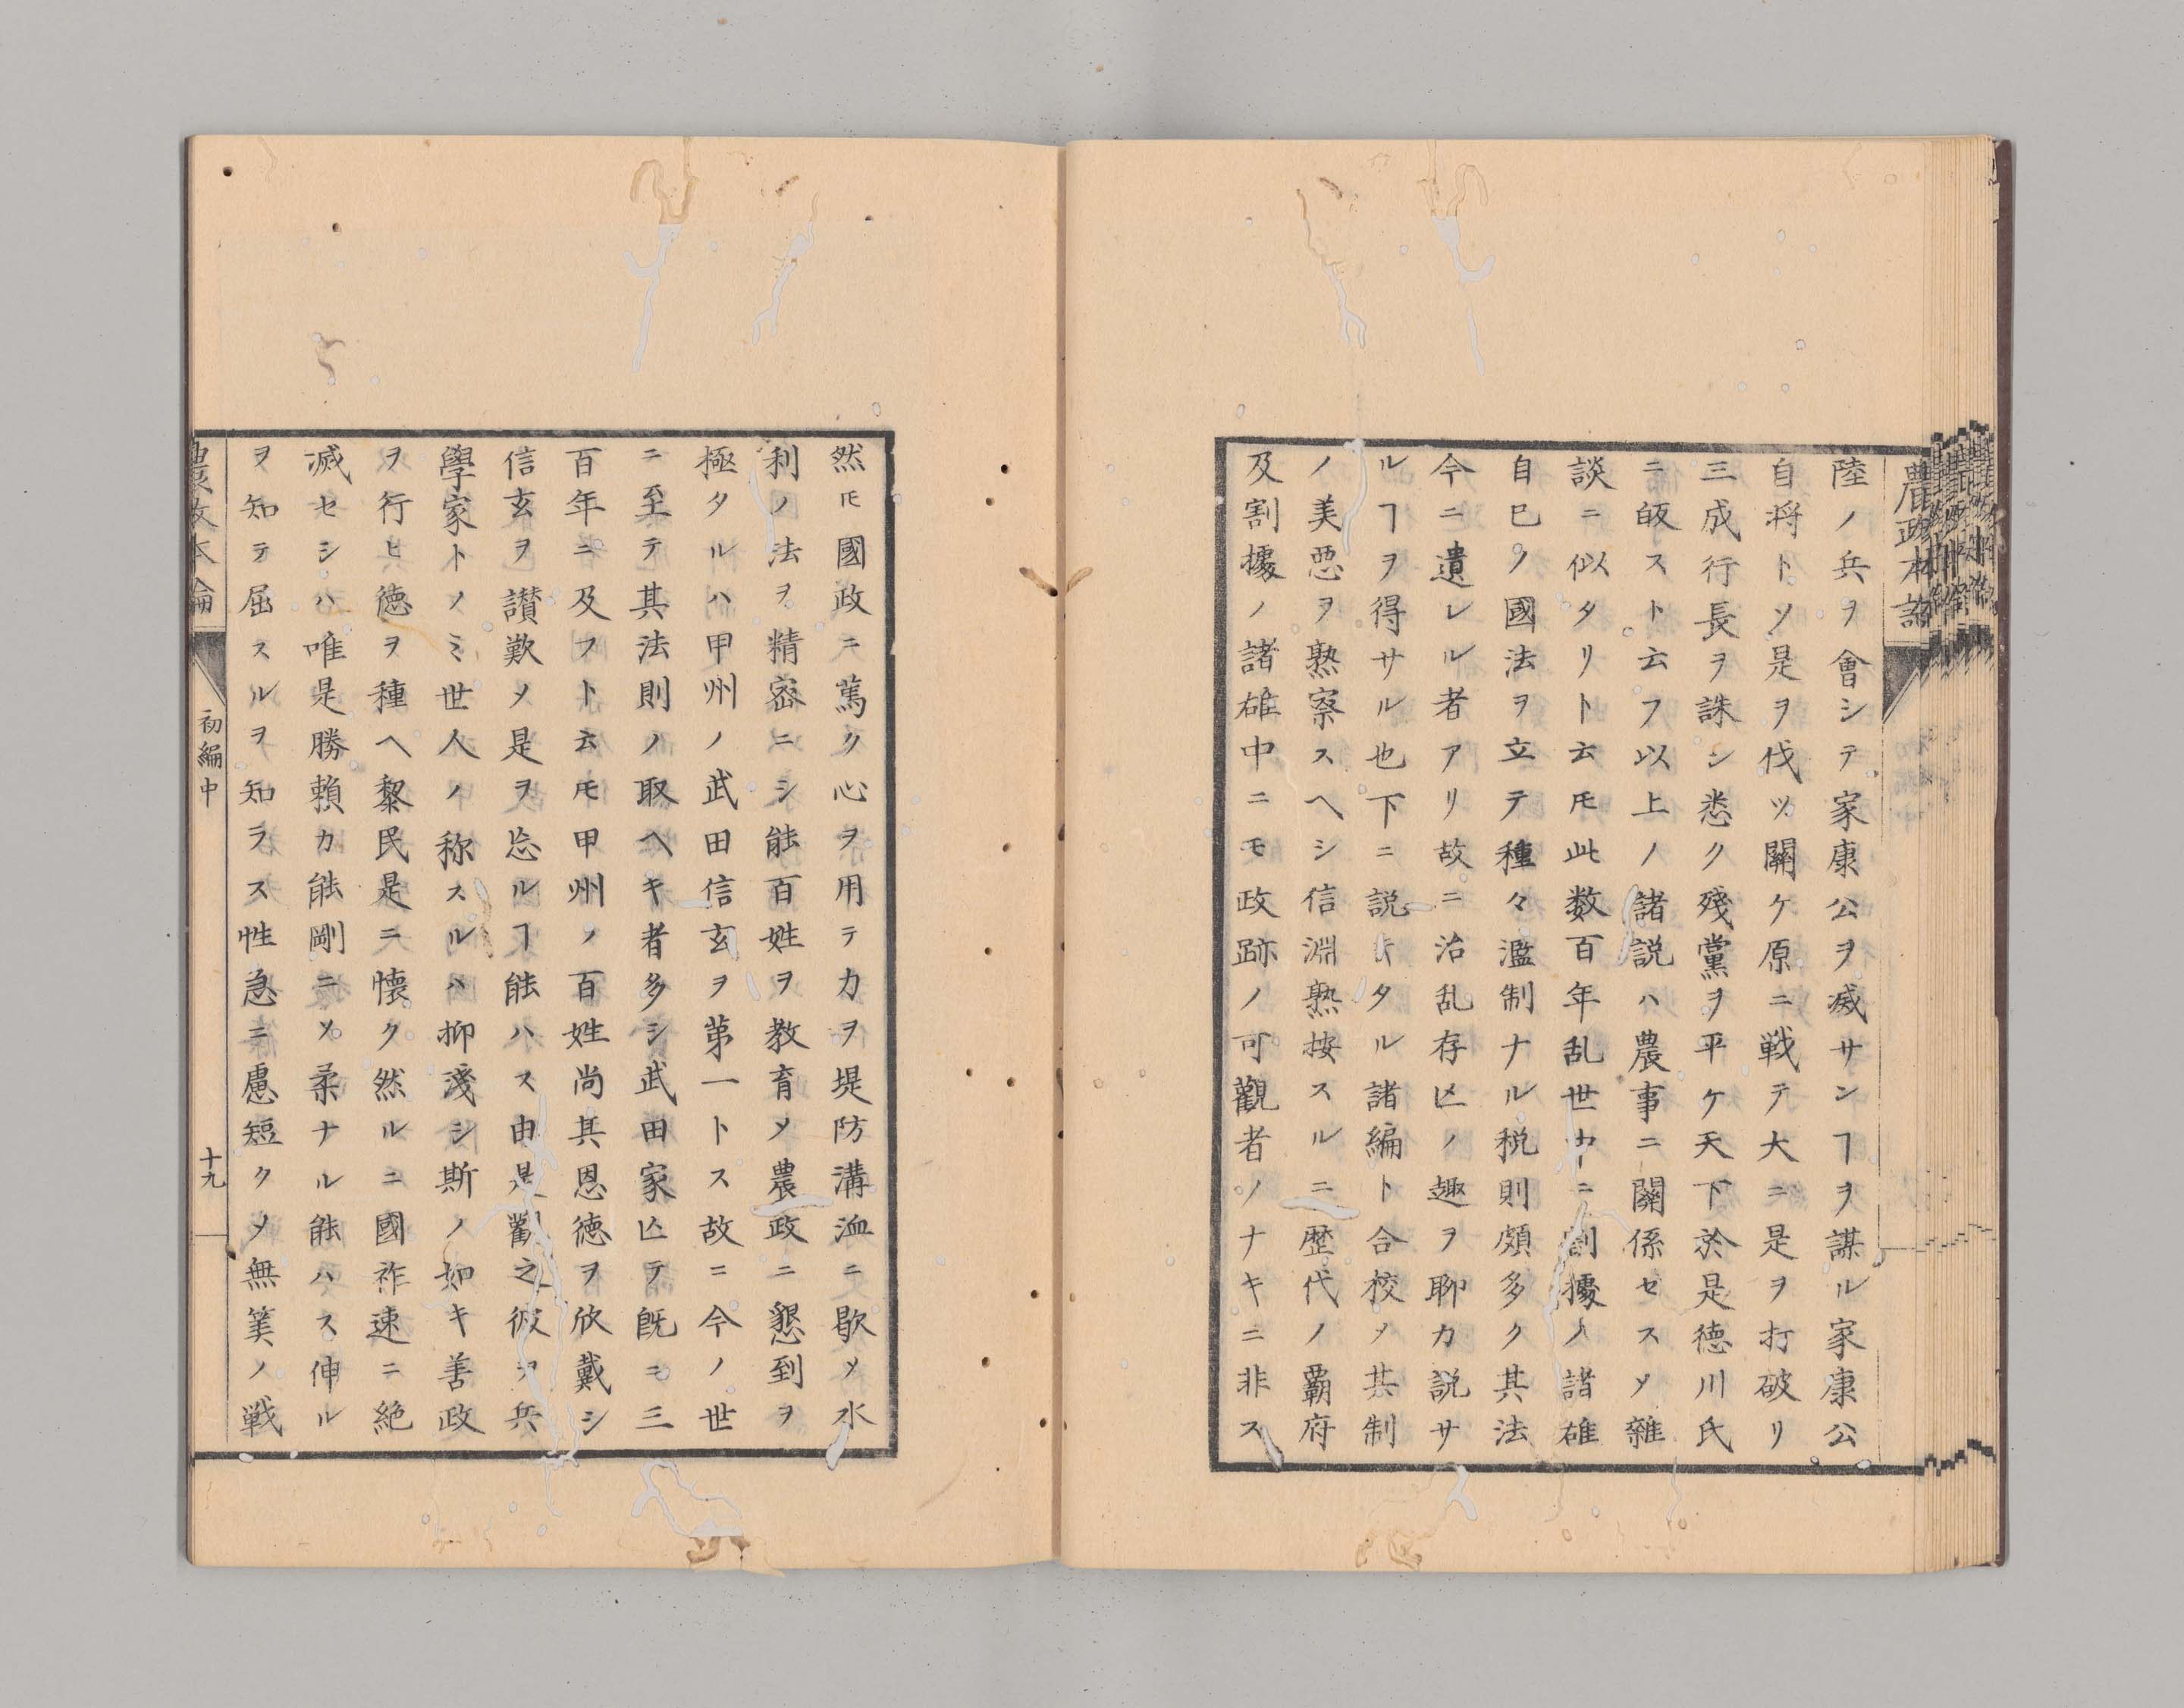 農政本論
陸ノ兵ヲ會シテ家康公ヲ滅サンヿヲ謀ル家康公
自将トソ是ヲ伐ツ關ケ原ニ戦テ大ニ是ヲ打破リ
三成行長ヲ誅シ悉ク殘黨ヲ平ケ天下於是徳川氏
ニ皈スト云フ以上ノ諸説ハ農事ニ關係セスメ雜
談ニ似タリト云𪜈此数百年乱世中ニ割據ノ諸雄
自已ノ國法ヲ立テ種々濫制ナル税則頗多ク其法
今ニ遺レル者アリ故ニ治乱存亡ノ趣ヲ聊カ説サ
ルヿヲ得サル也下ニ説キタル諸編ト合校メ其制
ノ美惡ヲ熟察スヘシ信淵熟按スルニ歴代ノ覇府
及割據ノ諸雄中ニモ政跡ノ可觀者ノナキニ非ス
然𪜈國政ニ篤ク心ヲ用テ力ヲ堤防溝洫ニ歇メ水
利ノ法ヲ精密ニシ能百姓ヲ教育メ農政ニ懇到ヲ
極タルハ甲州ノ武田信玄ヲ第一トス故ニ今ノ世
ニ至テ其法則ノ取ヘキ者多シ武田家亡テ既ニ三
百年ニ及フト云𪜈甲州ノ百姓尚其恩徳ヲ欣戴シ
信玄ヲ讃歎メ是ヲ忘ルヿ能ハス由是觀之彼ヲ兵
學家トノミ世人ノ称スルハ抑淺シ斯ノ如キ善政
ヲ行ヒ徳ヲ種ヘ黎民是ニ懐ク然ルニ國祚速ニ絶
滅セシハ唯是勝頼カ能剛ニメ柔ナル能ハス伸ル
ヲ知テ屈スルヲ知ラス性急ニ慮短クメ無筭ノ戦
農政本論
初編中
十九